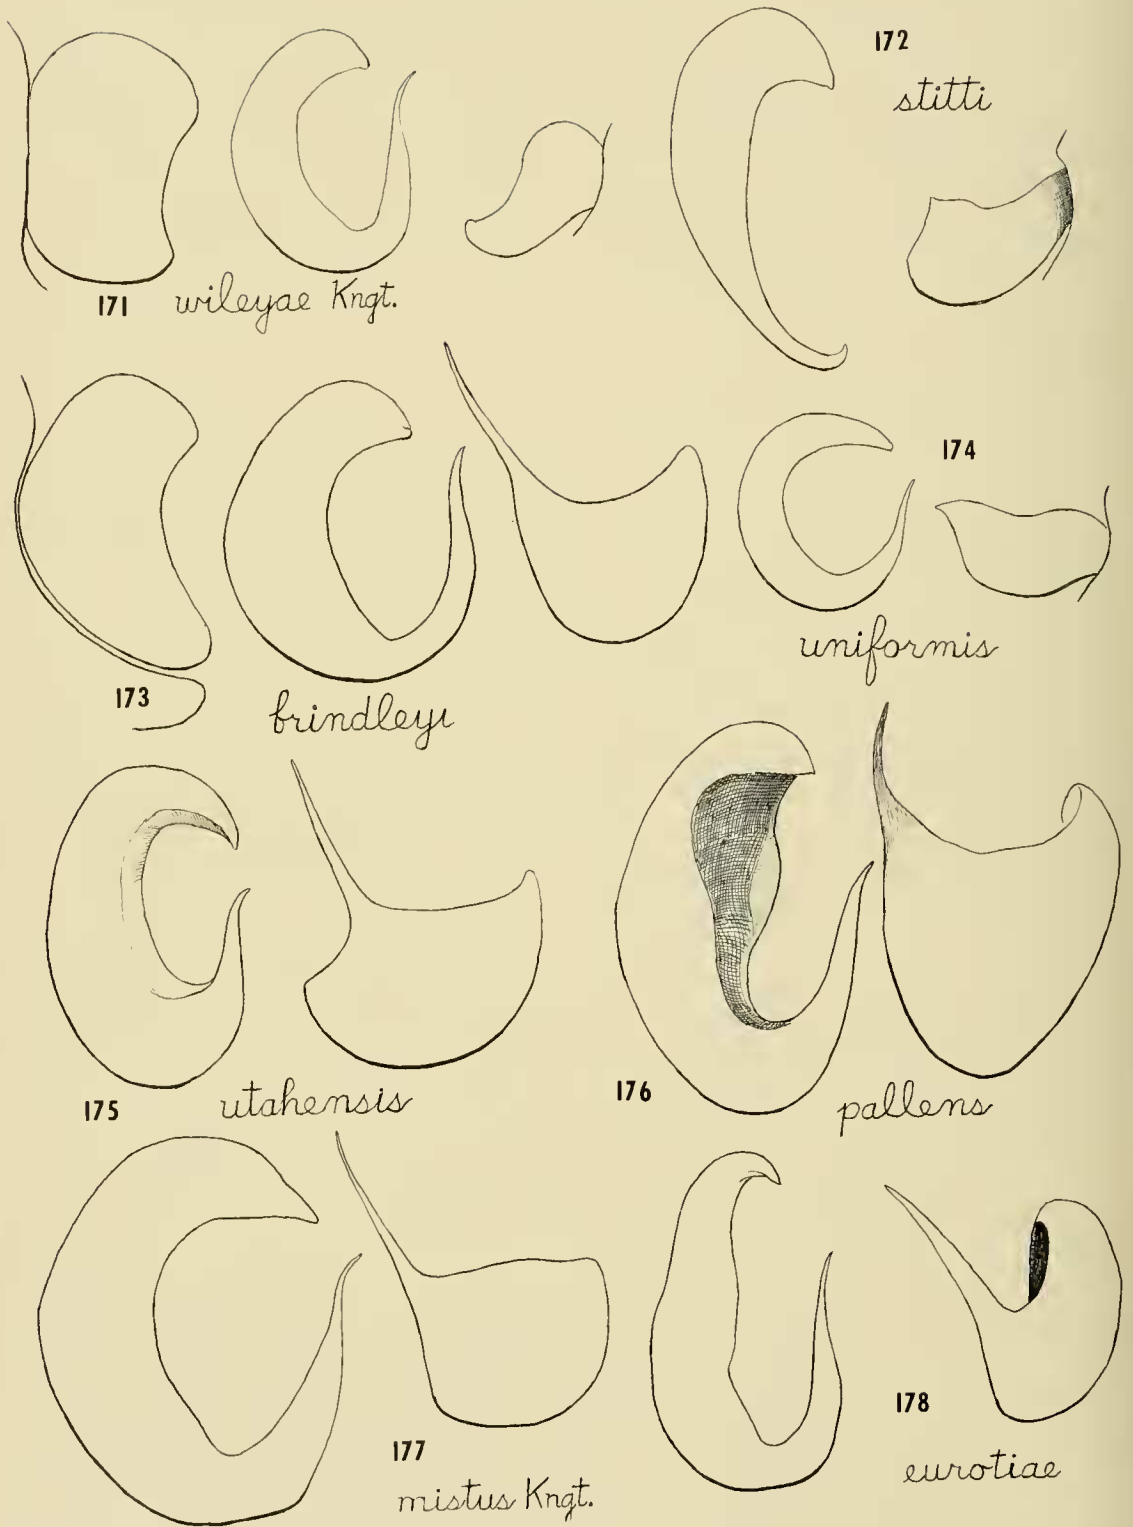 172
stitti
171 wileyae Kngt.
174
uniformis
173
brindleyi
175 utahensis
176 pallens
177
mistus Kngt.
178
eurotiae